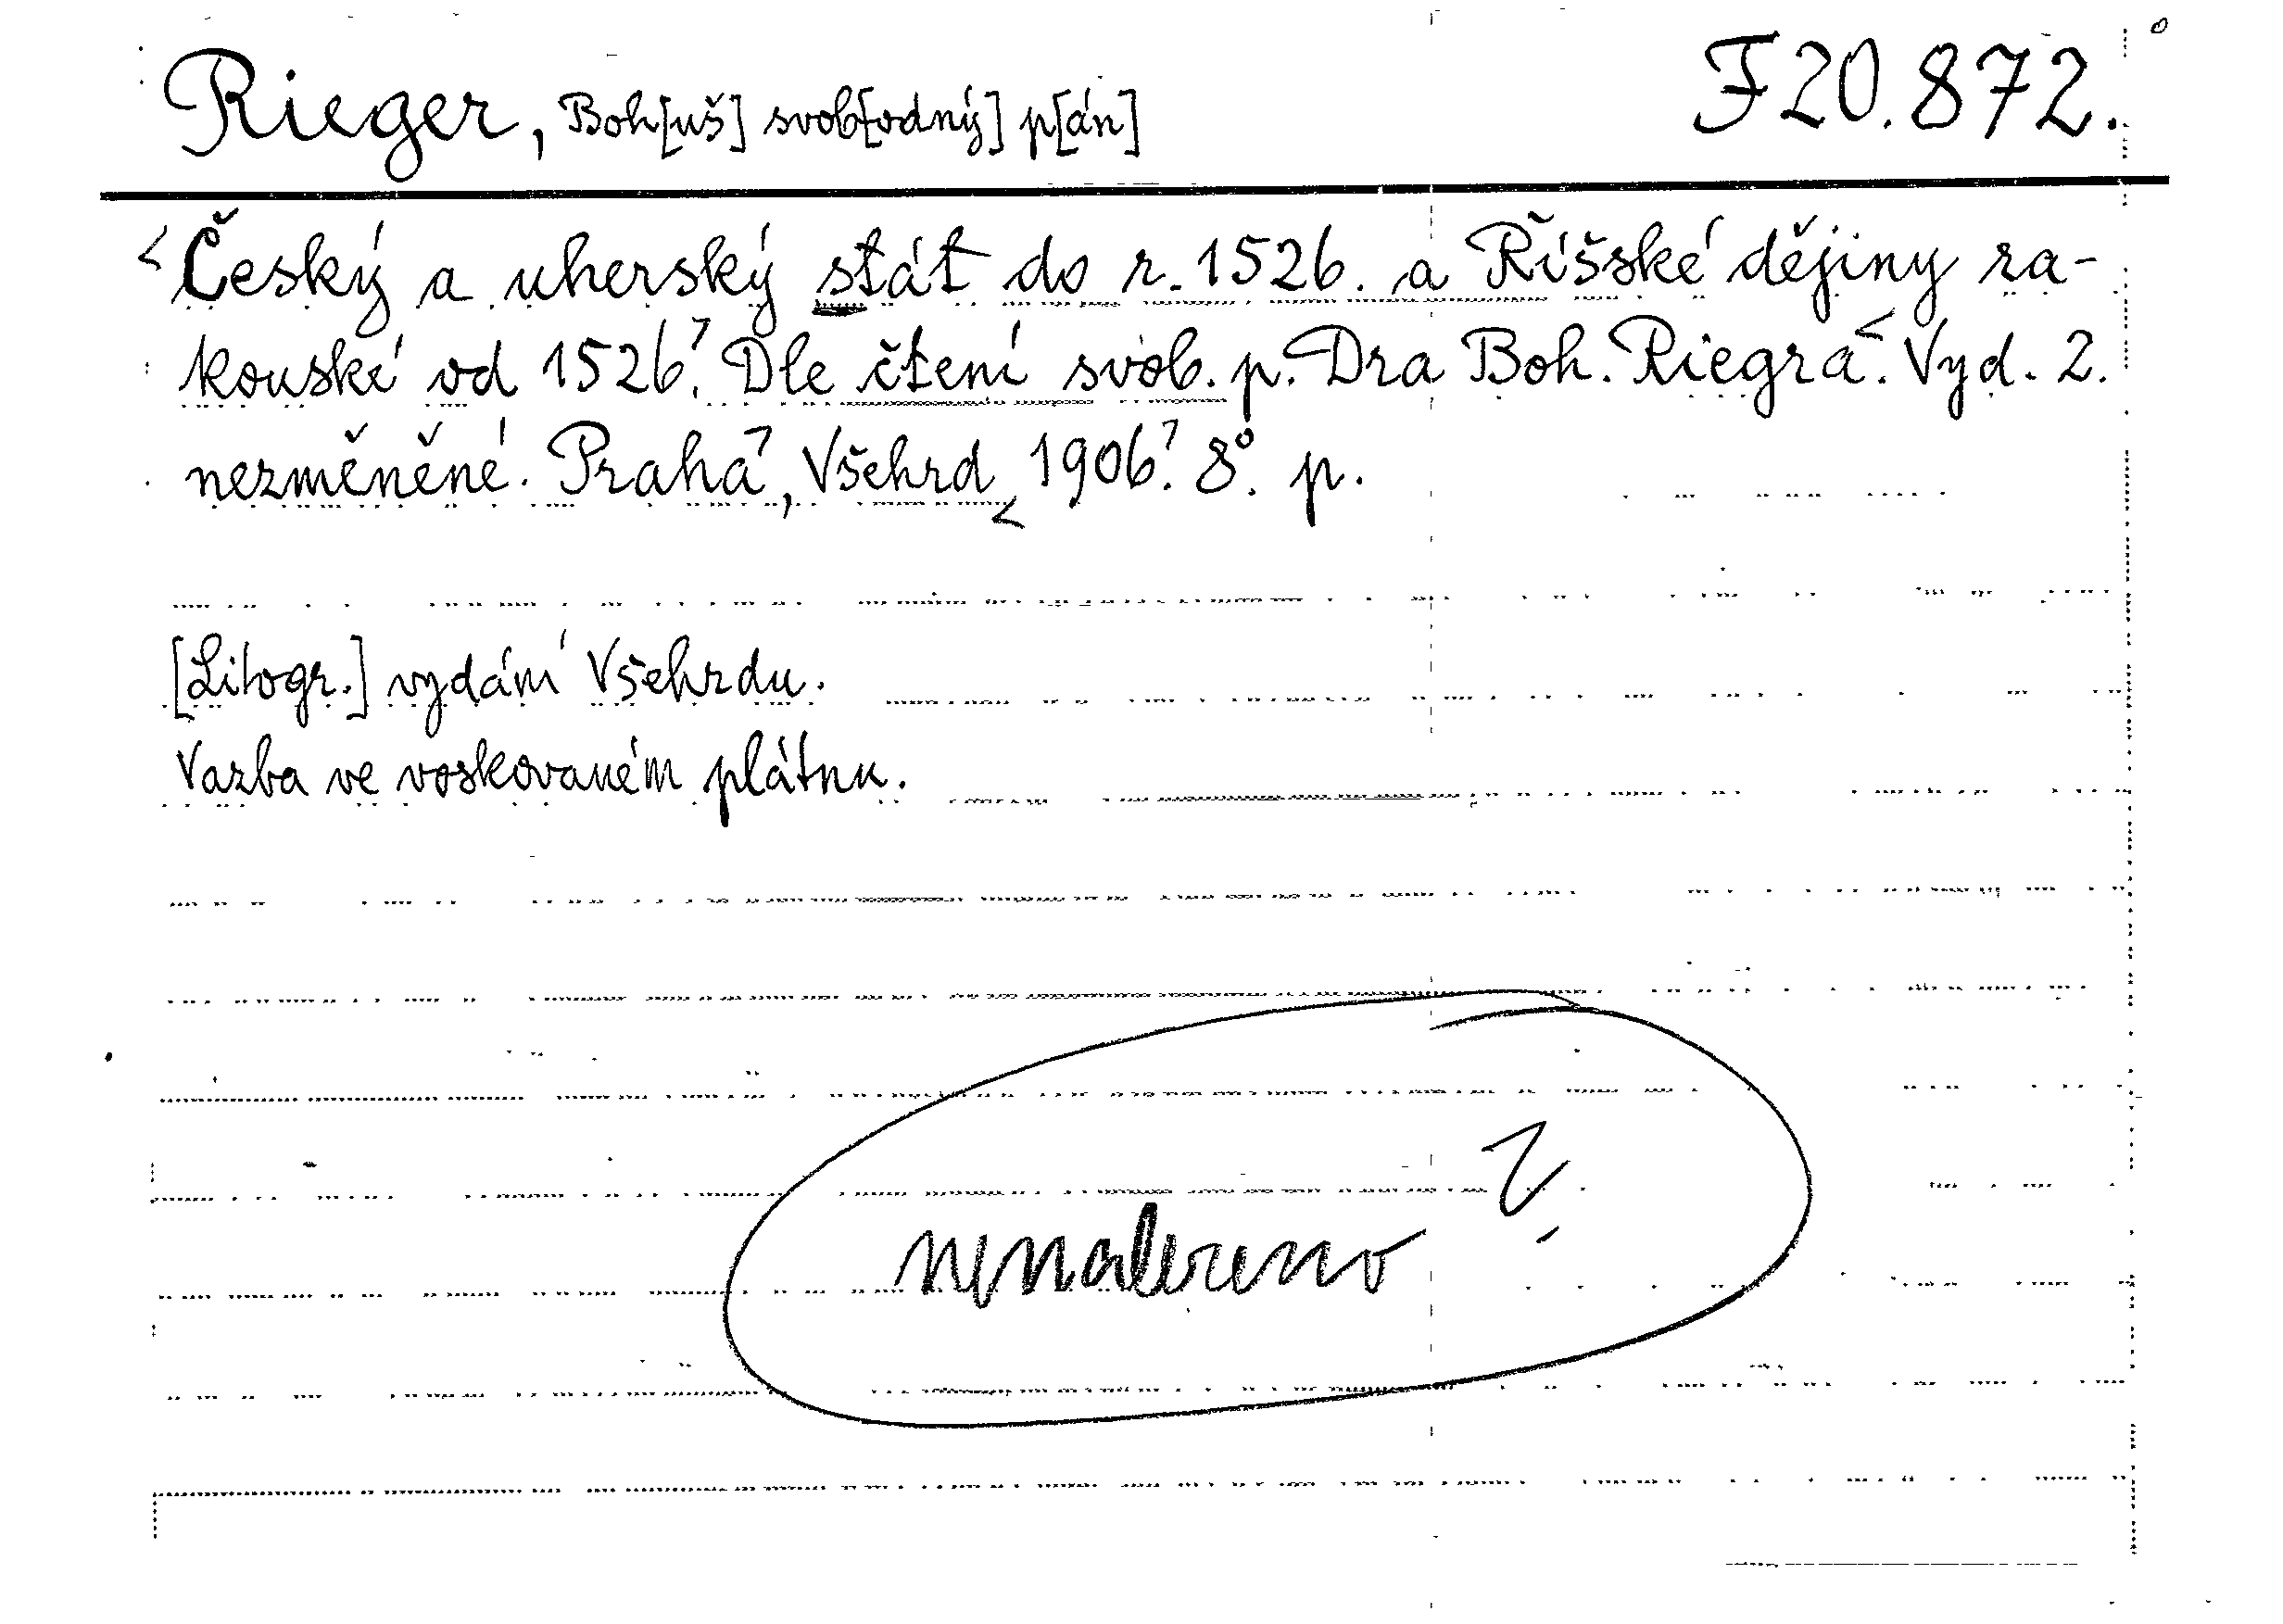 Rieger, Boh[uš] svob[odný] p[án] F 20.872.
<Český a uherský stát do r. 1526. a Říšské dějiny ra-
kouské od 1526.> Dle čtení svob. p. Dra Boh. Riegra<. Vyd. 2.
nezměněné. Praha>, Všehrd< 1906.> 8°. p.
[Litogr.] vydání Všehrdu.
Vazba ve voskovaném plátnu.
nenalezeno